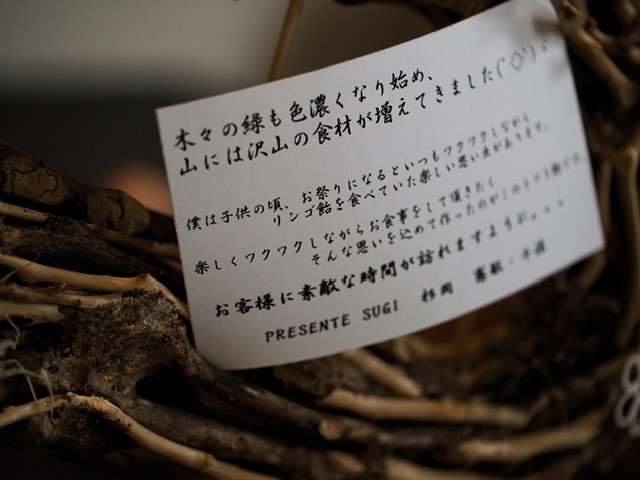 木々の緑も色濃くなり始め、
山には沢山の食材が増えてきました(´◇`)、
僕は子供の頃、お祭りになるといつもワクワクしながら
リンゴ飴を食べていた楽しい思い出があります。
楽しくワクワクしながらお食事をして頂きたく
そんな思いを込めて作ったのがこの
お客様に素敵な時間が訪れますように。。。
PRESENTE SUGI 杉岡 憲敏・千